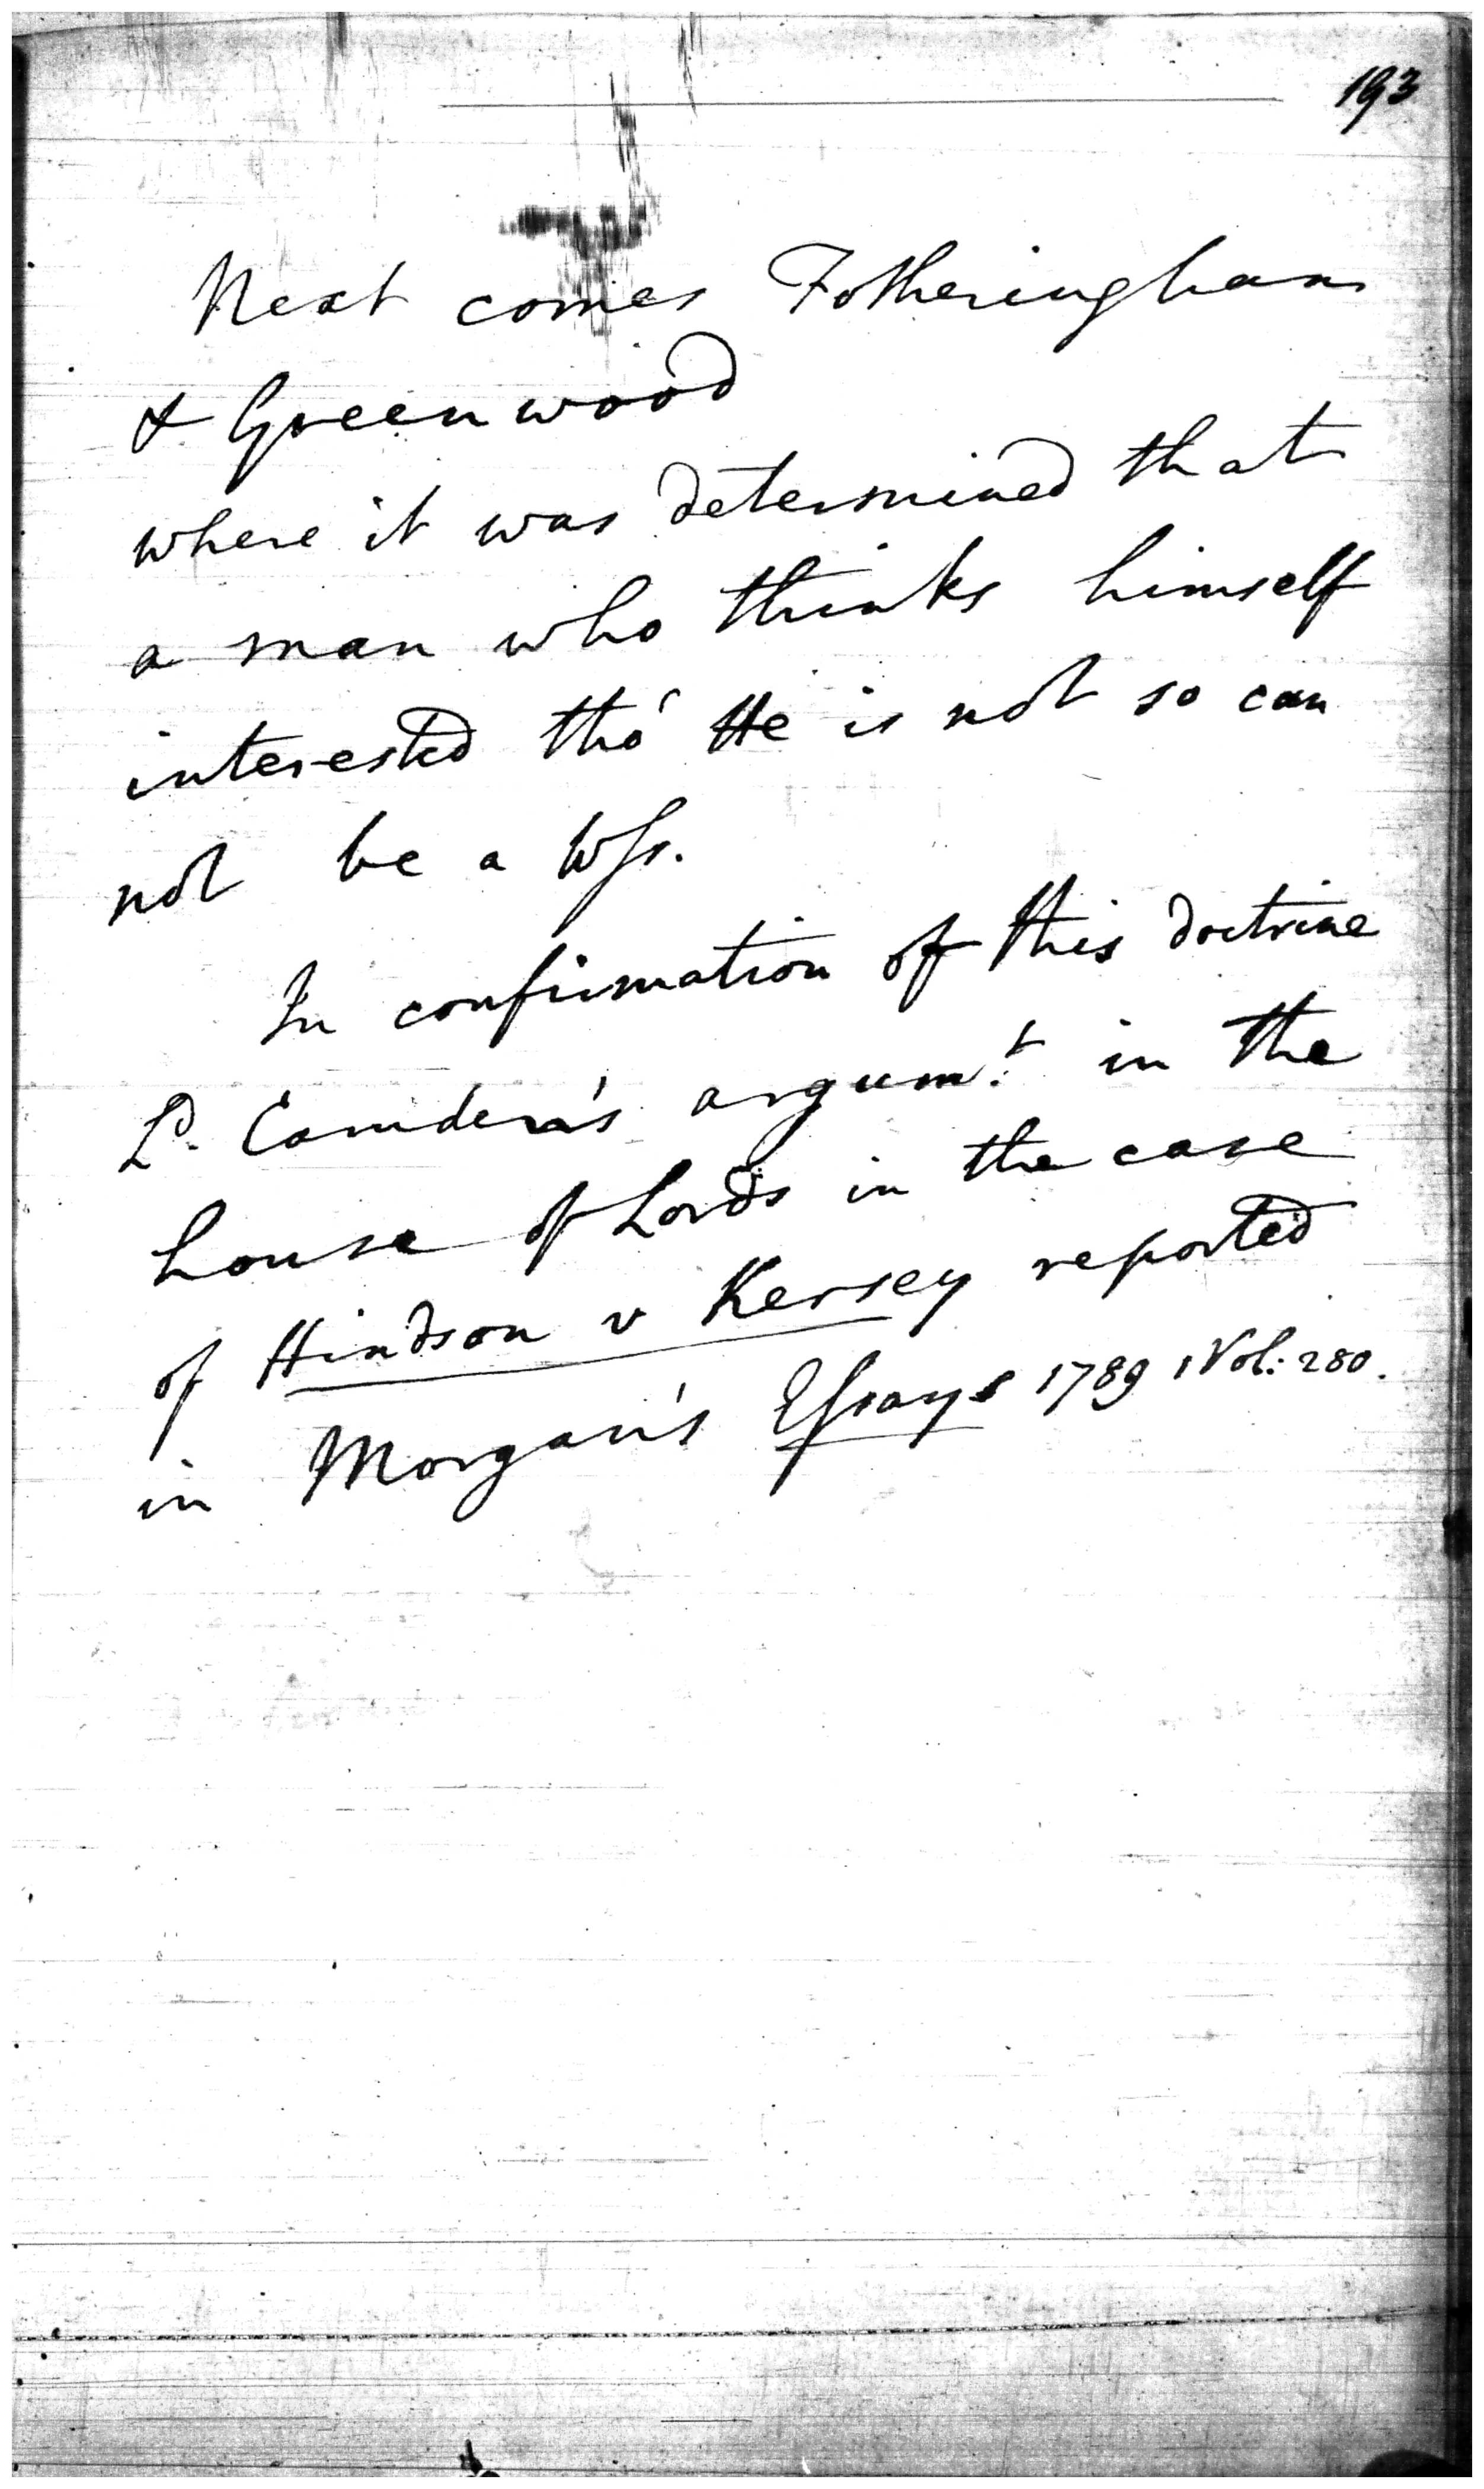 193
Next comes Fotheringham
& Greenwood
where it was determined that
a man who thinks himself
interested tho' He is not so can
not be a Wſs.
In confirmation of this doctrine
Ld. Camden's argumt. in the
house of Lords in the case
of Hindson v Kersey reported
in Morgan's Eſsays 1789 1 Vol: 280.